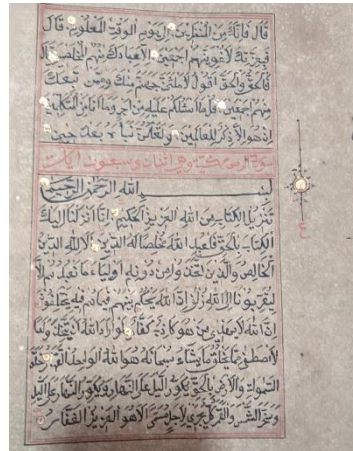 قال فانك من المنظرين الى يوم الوقت المعلوم قال
فبعزتك لاغوينهم اجمعين الا عبادك منهم المخلصين قال
فالحق والحق اقول لاملئن جهنم منك وممن تبعك
منهم اجمعين قل ما اسئلكم عليه من اجر وما انا من المتكلفين
ان هو الا ذكر للعالمين ولتعلمن نباه بعد حين
سورة الزمر مكية وهي اثنان وسبعون ايات
بسم الله الرحمن الرحيم
تنزيل الكتاب من الله العزيز الحكيم انا انزلنا اليك
الكتاب بالحق فاعبد الله مخلصا له الدين الا لله الدين
الخالص والذين اتخذوا من دونه اولياء ما نعبدهم الا
ليقربونا الى الله زلفى ان الله يحكم بينهم فيما هم فيه يختلفون
ان الله لا يهدي من هو كاذب كفار لو اراد الله ان يتخذ ولدا
لاصطفى مما يخلق ما يشاء سبحانه هو الله الواحد القهار خلق
السموات والارض بالحق يكور الليل على النهار ويكور النهار على الليل
وسخر الشمس والقمر كل يجري لاجل مسمى الا هو العزيز الغفار
ع